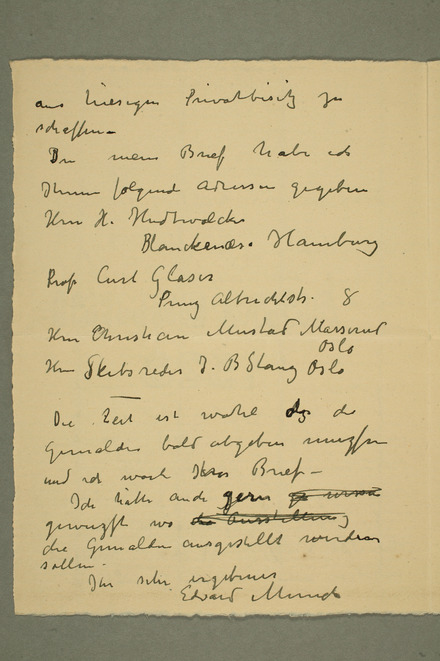 aus hiesigem Privatbisitz zu
schaffen –
In mein Brief habe ich
Ihnen folgende Adressen gegeben
Herr H. Hudtwalcker
Blanckenese Hamburg
Prof Curt Glaser
Prinz Albrechtstr. 8
Herr Christian Mustad Masserud
Oslo
Herr Skibsreder J. B Stang Oslo
Die Zeit ist wohl da die
Gemälde bald abgeben muszen
und ich wart Ihres Brief –
Ich hätte auch gern
gewuszt wo die Ausstellung
die Gemälde ausgestellt werden
sollen –
Ihr sehr ergebener
Edvard Munch